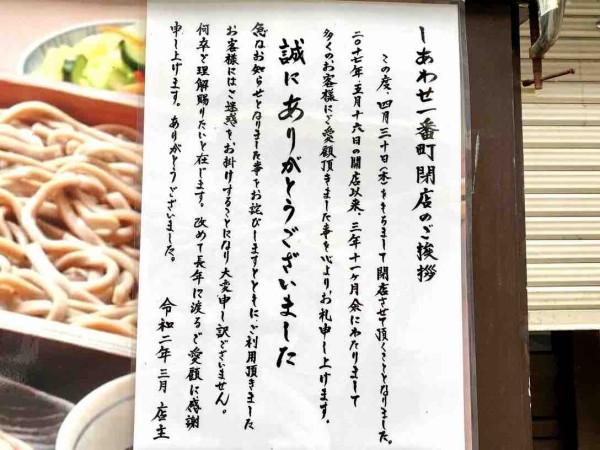 しあわせ一番町閉店のご挨拶
この度、四月三十日(木)をもちまして閉店させて頂くこととなりました。
二〇十七年五月十六日の開店以来、三年十一ヶ月余にわたりまして
多くのお客様にご愛顧頂きました事を心よりお礼申し上げます。
誠にありがとうございました
急なお知らせとなりました事をお詫びしますとともに、ご利用頂きました
お客様にはご迷惑をお掛けすることになり大変申し訳ございません。
何卒ご理解賜りたいと存じます。改めて長年に渡るご愛顧に感謝
申し上げます。ありがとうございました。
令和二年三月 店主